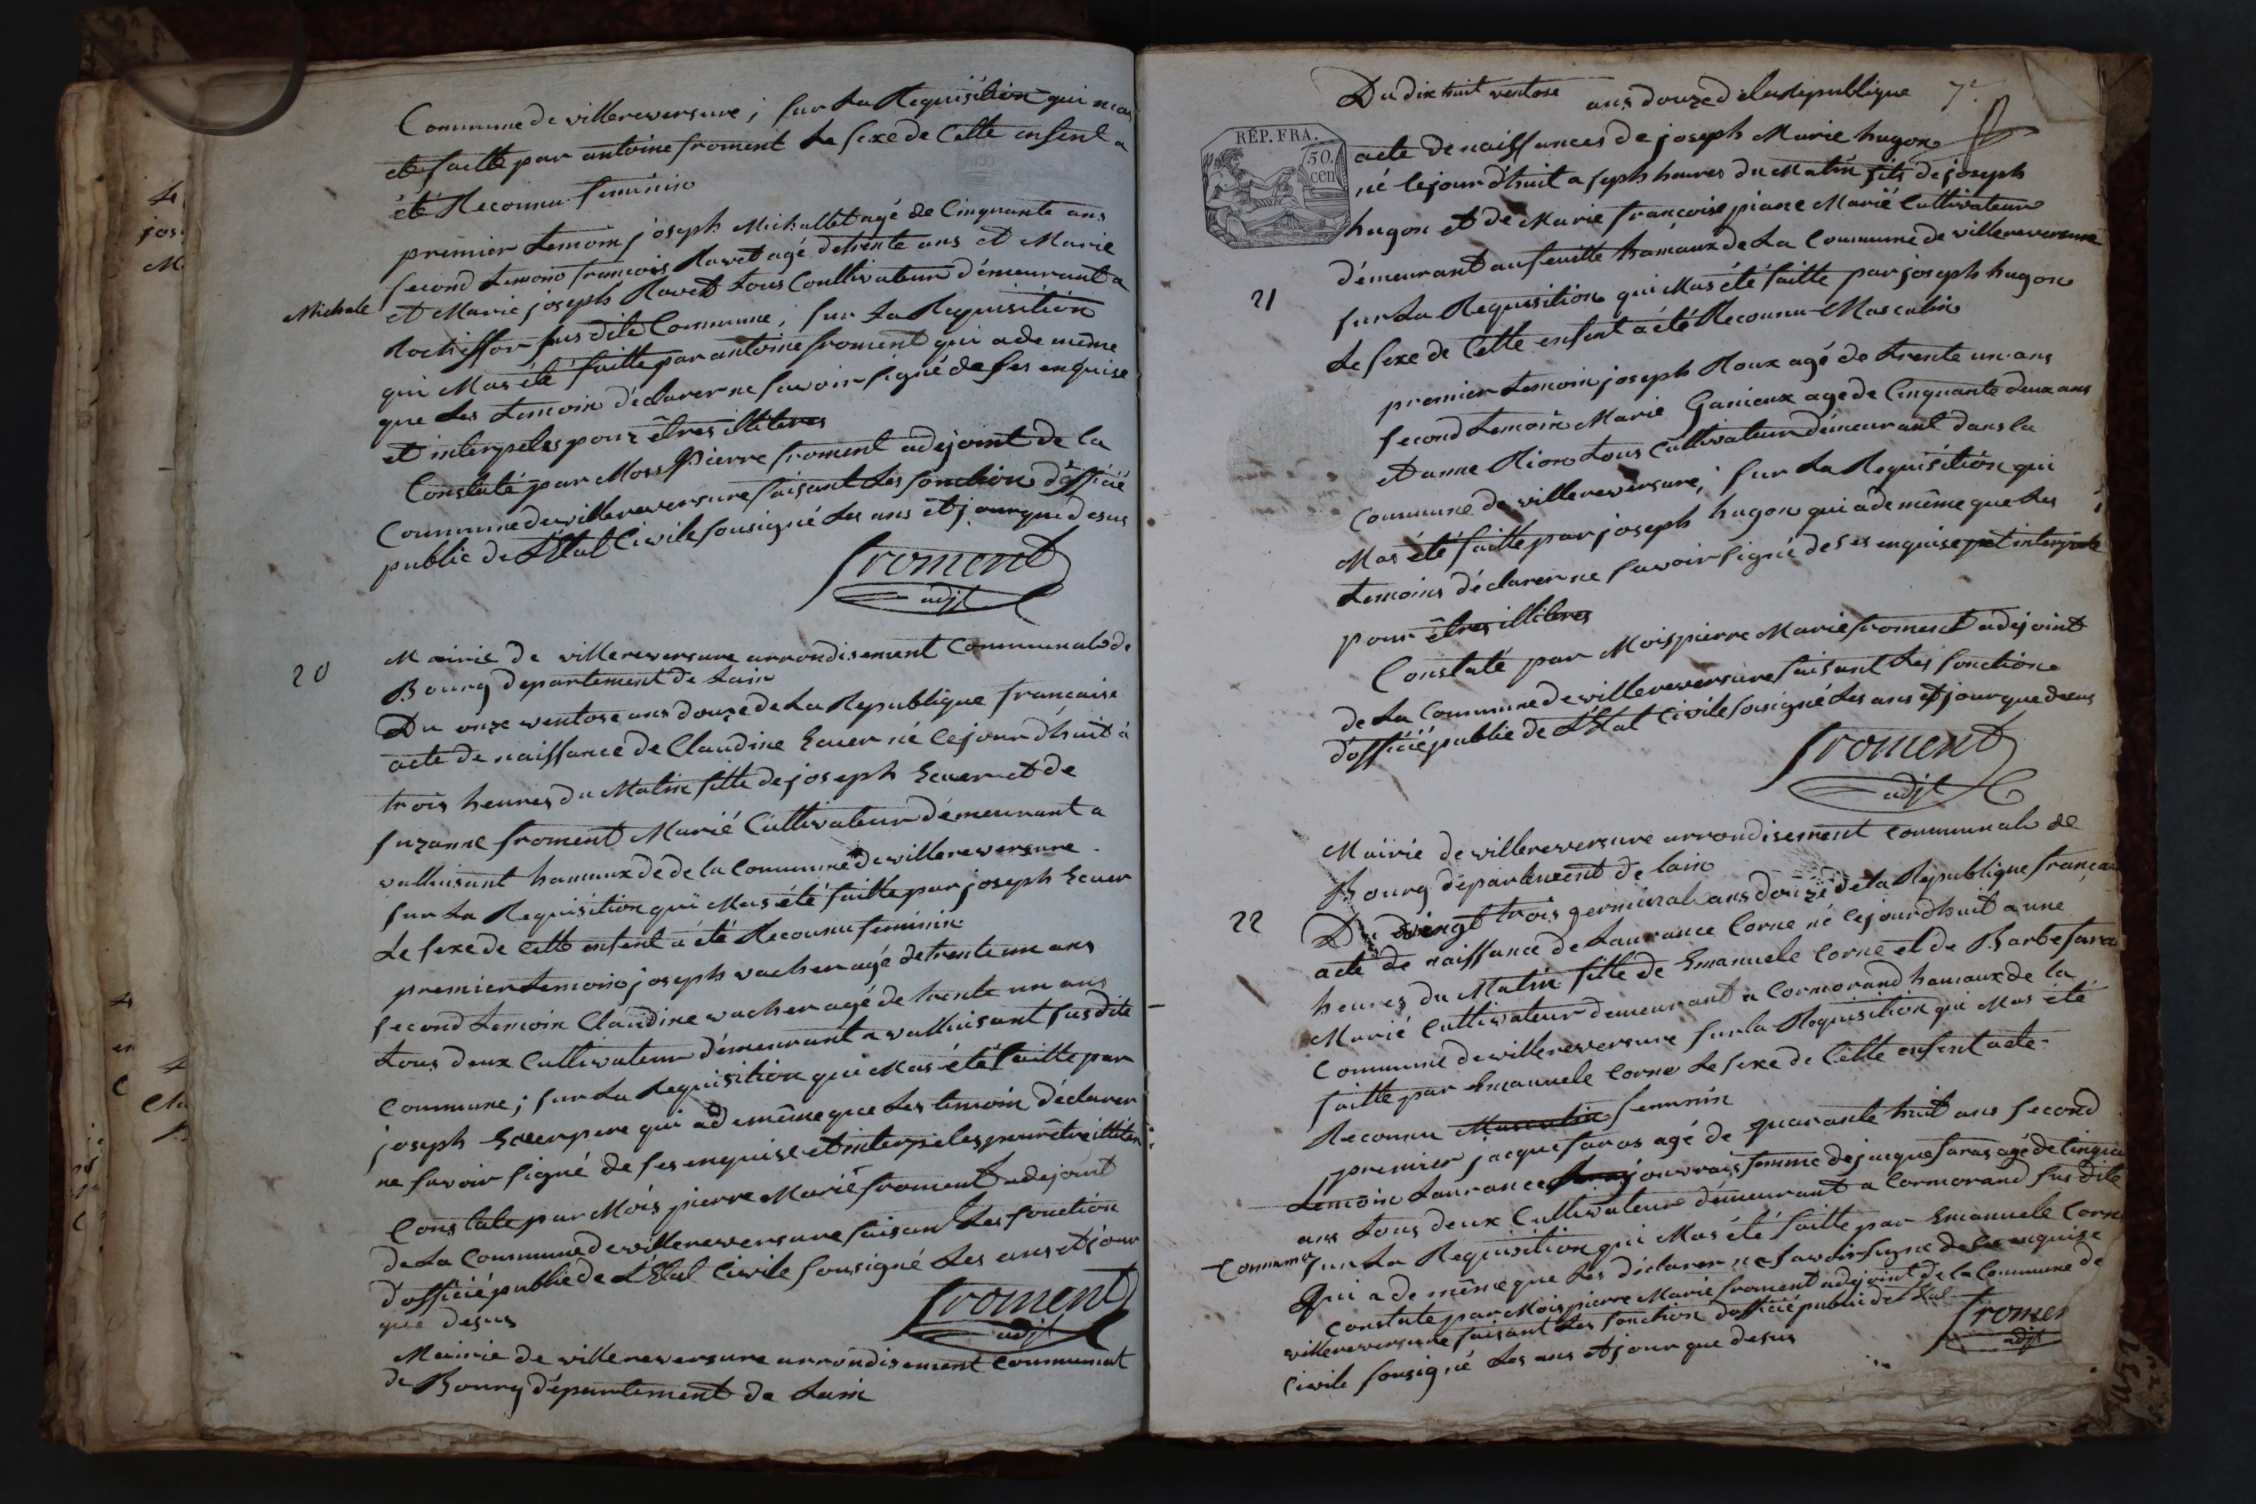 Commune de villereversure ; sur La Requisition qui mas
ete faitte par antoine froment Le sexe de Cette enfent a
été Reconnu feminin
premier temoin joseph Michallet agé de Cinquante ans
second temoin francois Ravet agé detrente ans et Marie
Michale
et Marie joseph Ravet tous Coultivateur démeurant a
Rochesfor susdite Commune, sur La Requisition
qui Mas été faitte par antoine froment qui ade même
que Les temoin déclarer ne savoir signé de ses enquise
et interpeles pour êtres illiteres
Constaté par Mois Pierre froment adejoint de la
Commune de villereversure faisant Les fonction d'officié
public de L'Etat Civile sousigné Les ans et jour que desus
froment
adjt
20
Mairie de villereversure arrondisement Communale de
Bourg departement de Lain
Du onze ventose ans douze de La Republique francaise
acte de naissance de Claudine Ecuer né Cejour dhuit à
trois heures du Matin fille de joseph Ecuer et de
suzanne froment Marié Cultivateur démeurant a
valluisant hamaux de de la Commune de villereversure
sur La Requisition qui Mas été faitte par joseph Ecuer
Le sexe de Cette enfent a été Reconnu feminin
premier temoin joseph vacher agé detrente un ans
second temoin Claudine vacher agé de trente un ans
tous deux Cultivateur démeurant a valluisant susdite
Commune ; sur La Requisition qui Mas été faitte par
joseph Ecuer pere qui ademême que Les temoin déclarer
ne savoir signé de ses enquise et interpeles pour être illiter
Constate par Mois pierre Marie froment adejoint
de La Commune de villereversure faisant Les fonction
d'officié public de L'Etat Civile sousigné Les ans et jour
que desus
froment
adjt
Mairie de villereversure arrondisement Communat
de Bourg département de Lain
Du dix huit ventose ans douze de la Republique
7e
REP. FRA.
50.
cen
acte de naissances de joseph Marie hugon
né Cejour d'huit a seph heures du Matin fils de joseph
hugon et de Marie francoise Marié Cultivateur
démeurant au feuille hamaux de La Commune de villereversure
21
sur La Requisition qui Mas été faitte par joseph hugon
Le sexe de Cette enfent a été Reconnu Masculin
premier temoin joseph Roux agé de trente un ans
second temoin Marie Ganieux age de Cinquante deux ans
et anne Rion tous Cultivateur démeurant dans la
Commune de villereversure, sur La Requisition qui
Mas été faitte par joseph hugon qui ade même que Les
temoins déclarer ne savoir signé de ses enquise et interpele
pour êtres illiteres
Constaté par Mois pierre Marie froment adejoint
de La Commune de villereversure faisant Les fonction
d'officié public de L'Etat Civile sousigné Les ans et jour que desus
froment
adjt
Mairie de villereversure arrondisement Communale de
Bourg département de lain
22
Du vingt trois germinal ans douze de la Republique francai
acte de naissance de Laurance Corne né Cejourdhuit a une
heures du Matin fille de Emanuele Corne et de Barbe faras
Marié Cultivateur demeurant a Cormorand hamaux de la
Commune de villereversure sur la Requisition qui Mas été
faitte par Emanuele Corne Le sexe de Cette enfent a ete
Reconnu Masculin feminin
premier jacque faras agé de quarante huit ans second
temoin Laurance jouvrais femme de jacque faras agé de Cinqua
ans tous deux Cultivateur démeurant a Cormorand susdite
Commune
sur La Requisition qui Mas été faitte par Emanuele Corne
Qui a de même que Les déclarer ne savoir signe de se enquise
Constate par Mois pierre Marie froment adejoint de la Commune de
villereversure faisant Les fonction d'officié public de L'Etat
Civile sousigné Les ans et jour que desus
fromen
adjt